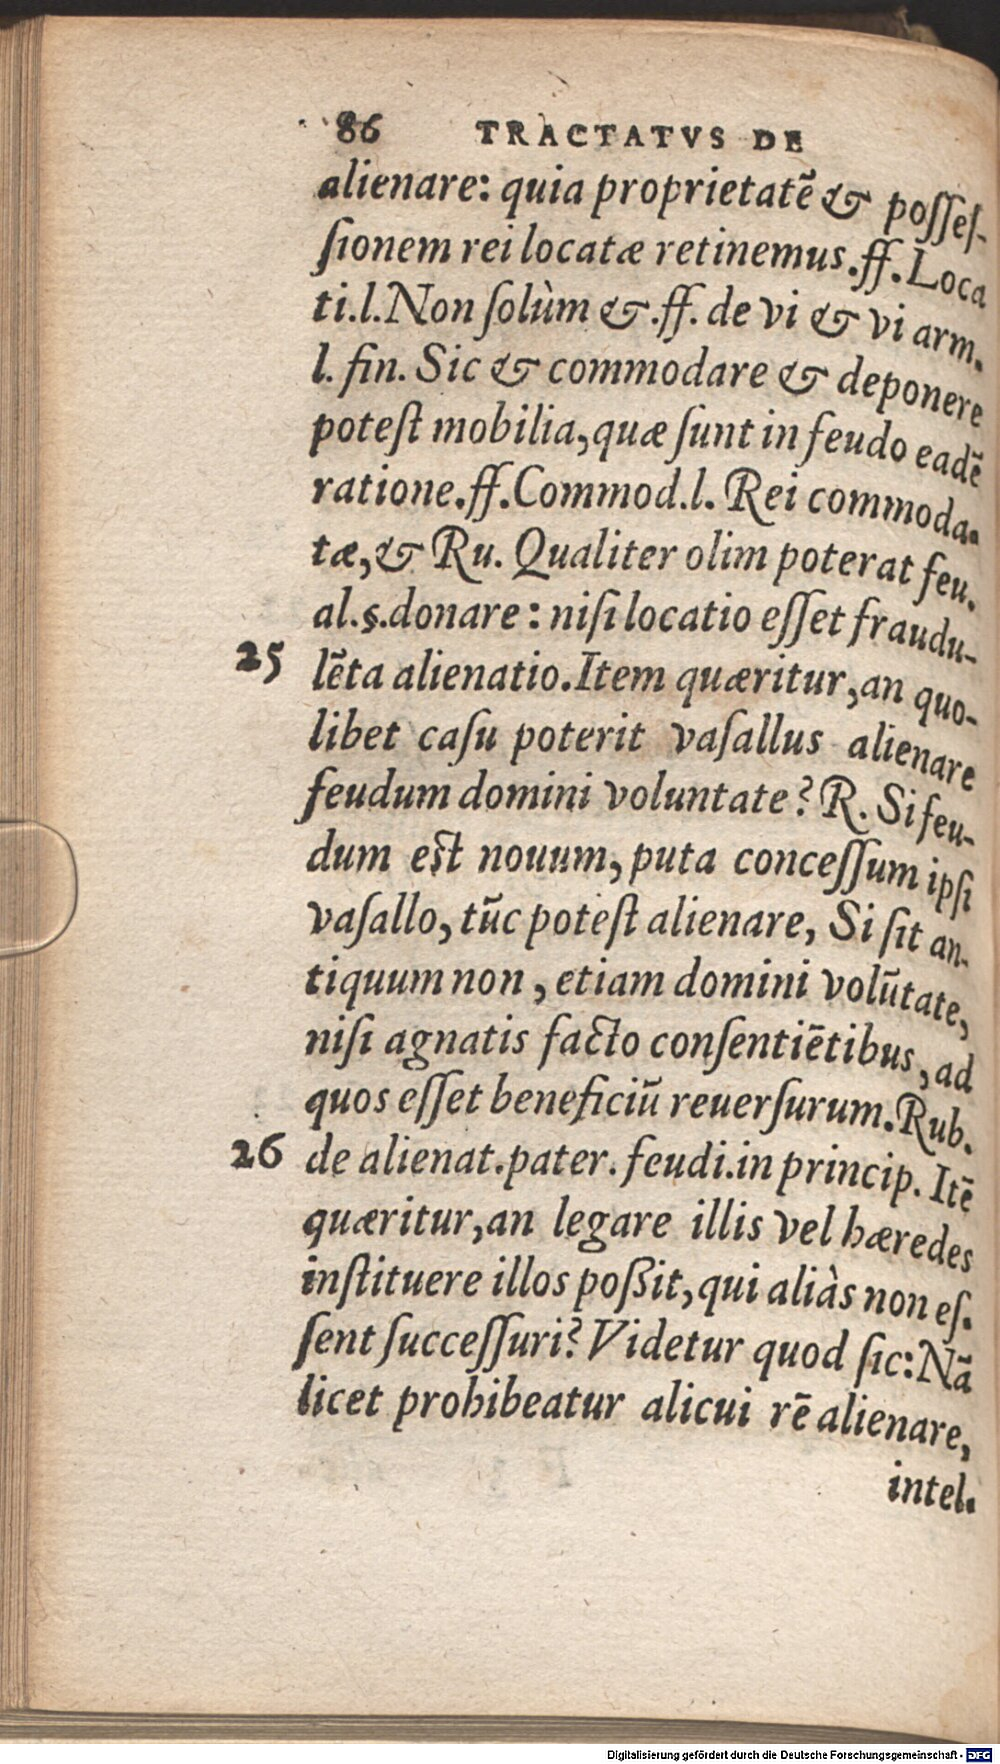 86 TRACTATVS DE
alienare: quia proprietatē & posses-
sionem rei locatæ retinemus.ff.Loca
ti.l.Non solùm &.ff. de vi & vi arm.
l. fin. Sic & commodare & deponere
potest mobilia, quæ sunt in feudo eadē
ratione.ff.Commod.l. Rei commoda-
tæ, & Ru. Qualiter olim poterat feu.
al.§.donare: nisi locatio esset fraudu-
25 lēta alienatio.Item quæritur, an quo-
libet casu poterit vasallus alienare
feudum domini voluntate? R. Si feu-
dum est nouum, puta concessum ipsi
vasallo, tūc potest alienare, Si sit an-
tiquum non, etiam domini volūtate,
nisi agnatis facto consentiētibus, ad
quos esset beneficiū reuersurum.Rub.
26 de alienat.pater. feudi.in princip. Itē
quæritur, an legare illis vel hæredes
instituere illos poßit, qui aliàs non es-
sent successuri? Videtur quod sic: Nā
licet prohibeatur alicui rē alienare,
intel-
Digitalisierung gefördert durch die Deutsche Forschungsgemeinschaft - DFG